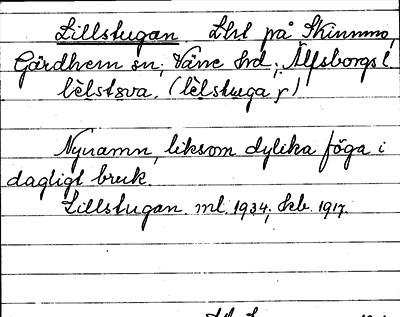 Lillstugan. Lht på Skinnmo,
Gärdhem sn; Väne hrd; Älfsborgs l.
lèlstɞva. (lèlstuga y)
Nynamn, liksom dylika föga i
dagligt bruk.
Lillstugan. ml. 1934; Skb. 1917.